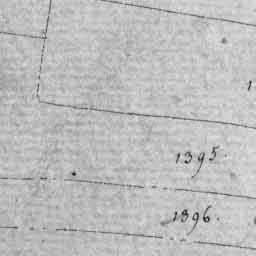 1395.
1896.